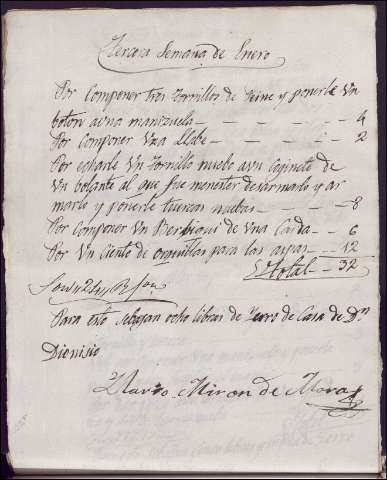 Tercera Semana de Enero
Por componer tres tornillos de Peine y ponerle Un
boton auna manizuela — — — — — 4
Por Componer Una Llabe — — — — 2
Por echarle Un tornillo nuebo aun Cojinete de
Un bolante al que fue menester desarmarlo y ar
marlo y ponerle tuercas nuebas — — 8
Por componer Un Berbiqui de Una Caida — 6
Por Un Ciento de orquillas para las aspas — 12
Total — 32
Para esto sebajan ocho libras de Yerro de Casa de Dn
Dionisio
Miron de Mora